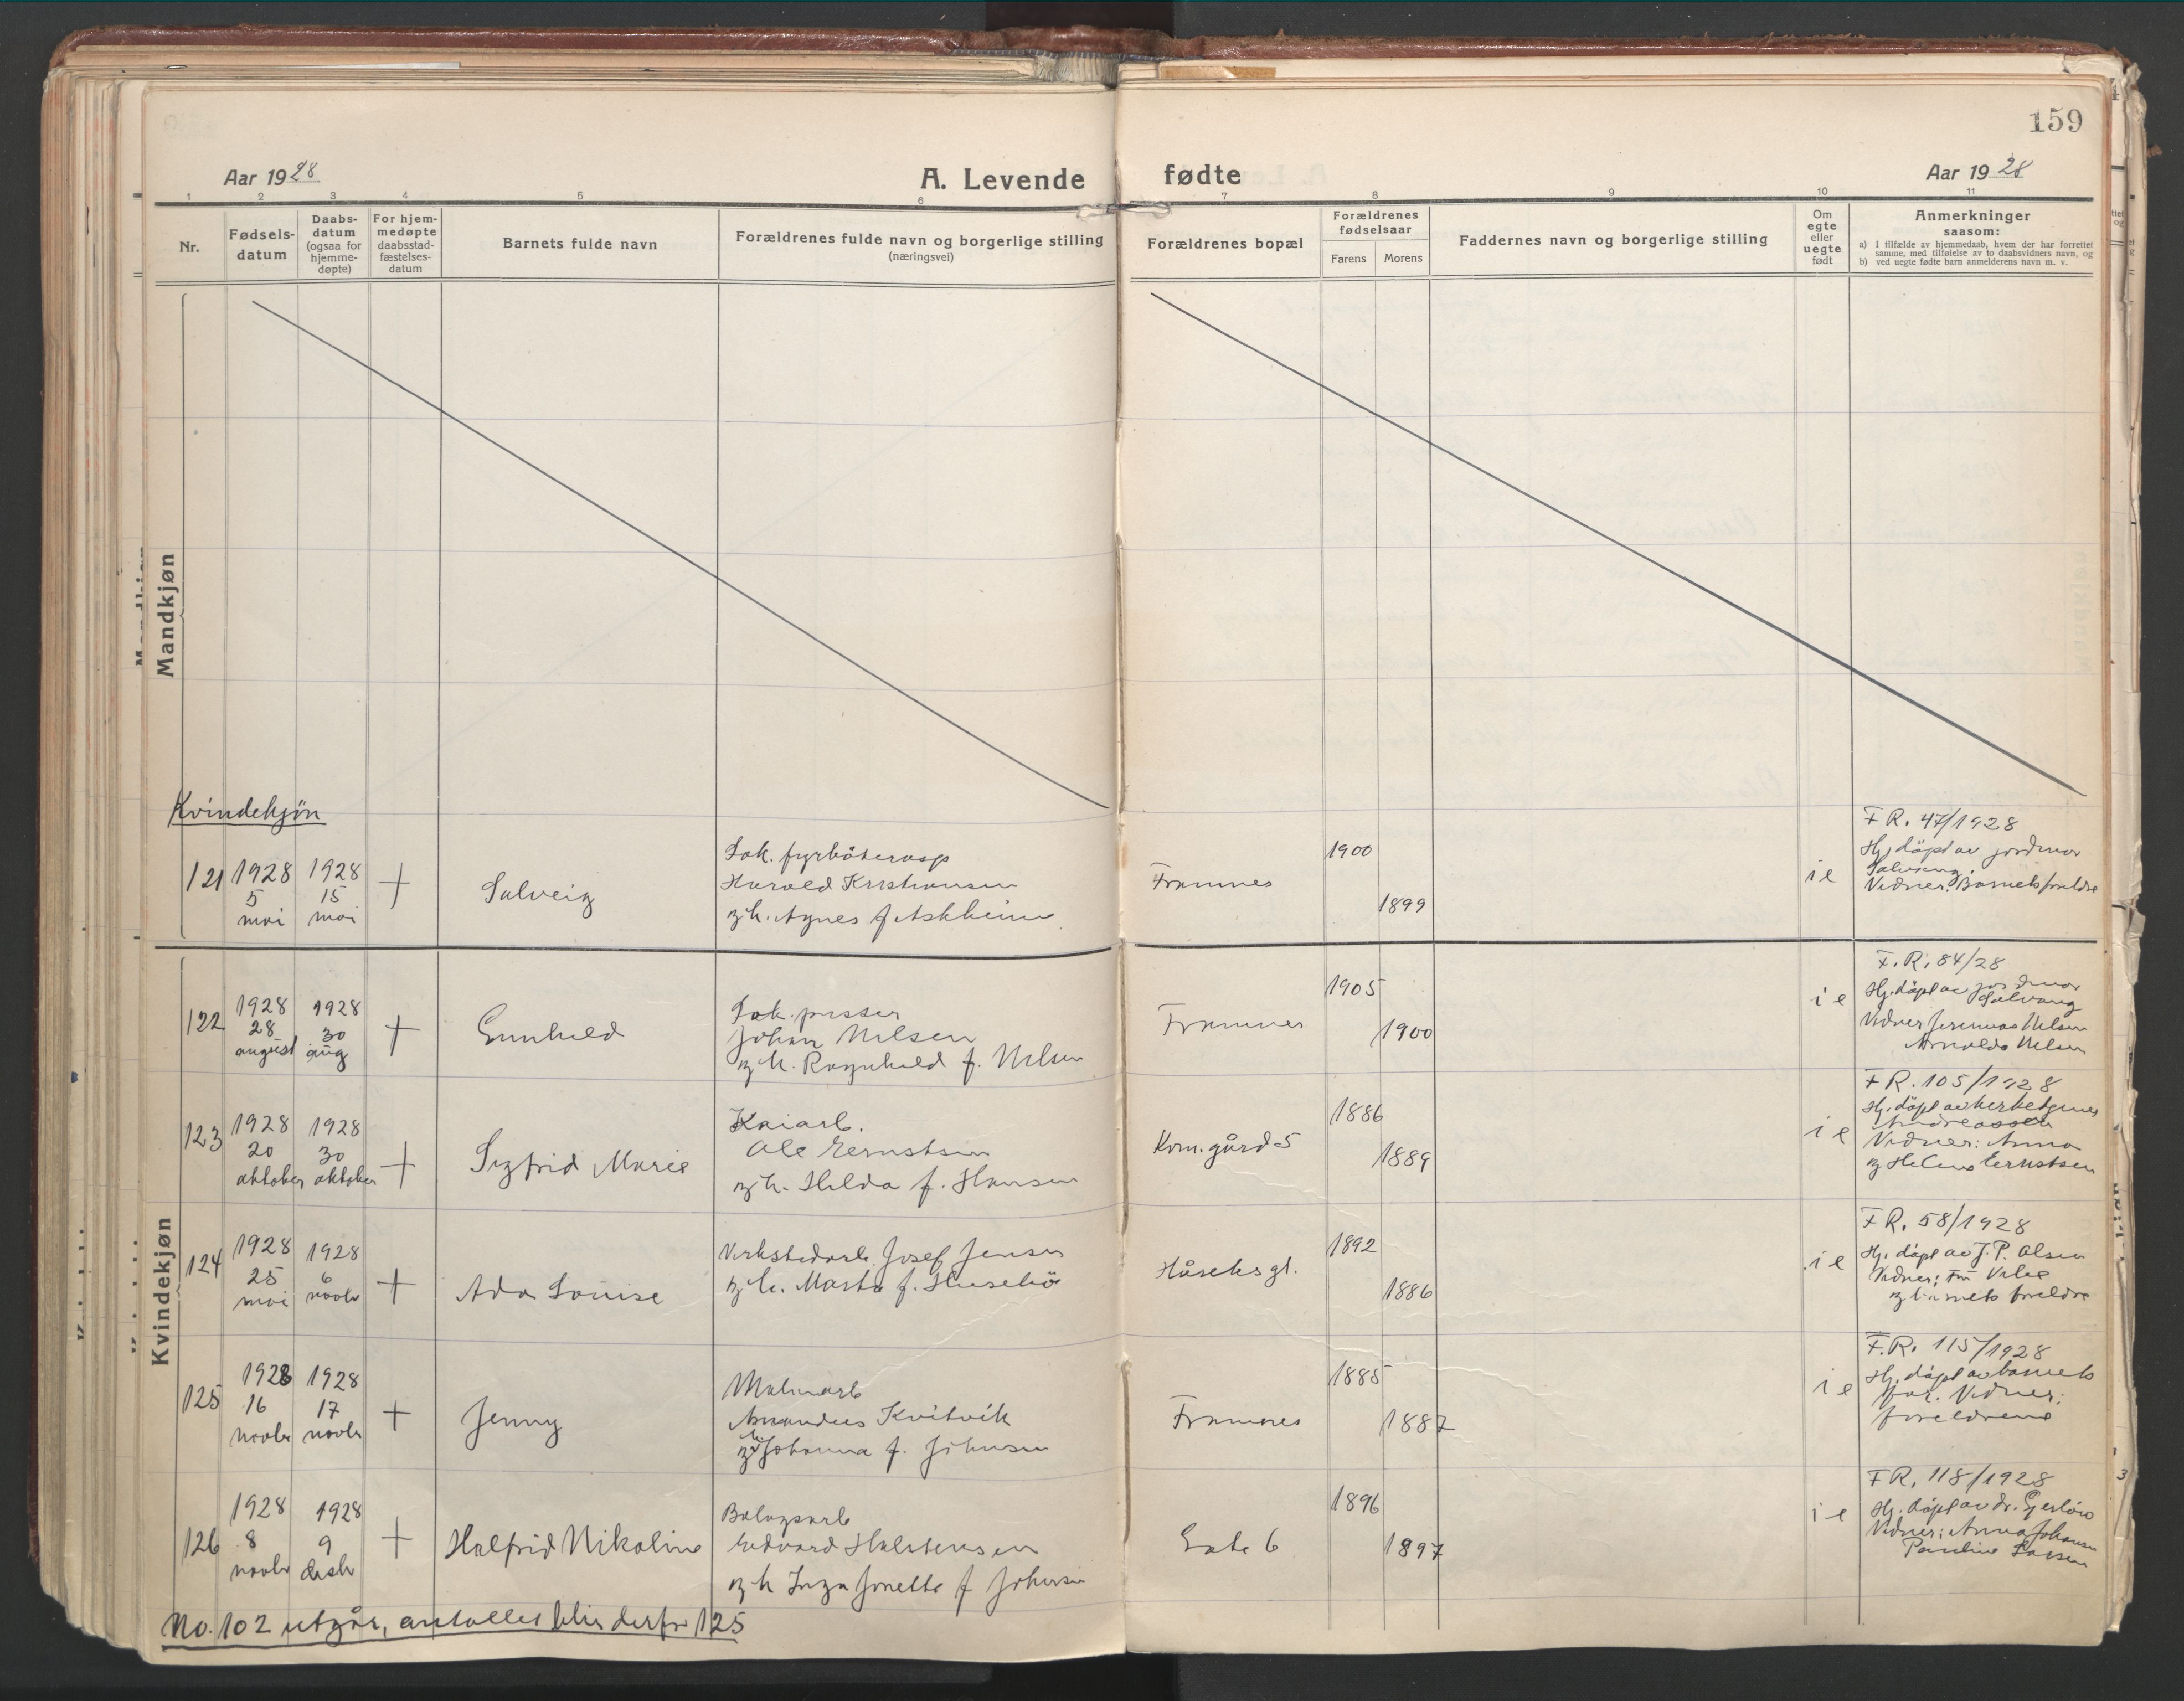 159
Aar 1928
A. Levende fødte
Aar 1928
1 2 3 4 5 6 7 8 9 10 11
Nr.
Fødsels-
datum
Daabs-
datum
(ogsaa for
hjemme-
døpte)
For hjem-
medøpte
daabsstad-
fæstelses-
datum
Barnets fulde navn
Forældrenes fulde navn og borgerlige stilling
(næringsvei)
Forældrenes bopæl
Forældrenes
fødselsaar
Farens Morens
Faddernes navn og borgerlige stilling
Om
egte
eller
uegte
født
Anmerkninger
saasom:
a) I tilfælde av hjemmedaab, hvem der har forrettet
samme, med tilføielse av to daabsvidners navn, og
b) ved uegte fødte barn anmelderens navn m. v.
Mandkjøn
Kvindekjøn
121
1928
5
mai
1928
15
mai
+
Solveig
Lok. fyrbøterasp
Harald Kristiansen
og h. Agnes f Askheim
Framnes
1900
1899
i e
F R. 47/1928
Hj. døpt av jordmor
Solvang.
Vidner: Barnets foreldre
Kvindekjøn
122
1928
28
august
1928
30
aug
+
Gunhild
Lok. pusser
Johan Nilsen
og h. Ragnhild f. Nilsen
Framnes
1905
1900
i e
F. R. 84/28
Hj. døpt av jordmor
Solvang
Vidner Jerimas Nilsen
Arnolda Nilsen
123
1928
20
oktober
1928
30
oktober
+
Sigfrid Marie
Kaiarb.
Ole Ernstsen
og h. Hilda f. Hansen
Kom.gård 5
1886
1889
i e
F R. 105/1928
Hj. døpt av kirketjener
Andreassen
Vidner: Anna
og Helena Ernstsen
124
1928
25
mai
1928
6
novbr
+
Ada Louise
Verkstedarb. Josef Jensen
og h. Marta f. Husebø
Håreks gt.
1892
1886
i e
F R. 58/1928
Hj. døpt av J. P. Olsen
Vidner: Fru
og barnets foreldre
125
1928
16
novbr
1928
17
novbr
+
Jenny
Malmarb
Amandus Kvitvik
og h. Johanna f. Johnsen
Framnes
1885
1887
i e
F. R. 115/1928
Hj. døpt av barnets
far. Vidner:
foreldrene
126
1928
8
novbr
1928
9
desbr
+
Halfrid Nikoline
Bolagsarb
Edvard Halstensen
og h Inga Jonette f Johnsen
Gate 6
1896
1897
i e
F R. 118/1928
Hj. døpt av dr. Gjerløw
Vidner: Anna Johansen
Pauline Larsen
No. 102 utgår, antallet blir derfor 125